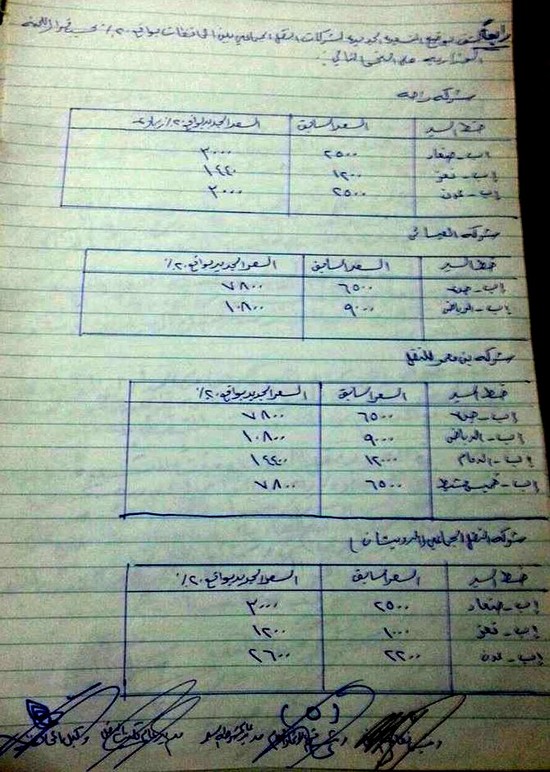 رابعاً كشف توقيع التسعيرة الجديدة لشركات النقل الجماعي بين المحافظات بواقع ٢٠٪ حسب قرار اللجنة
على النحو التالي:
شركة راحة
خط السير السعر السابق السعر الجديد بواقع ٢٠٪ زيادة
إب - صنعاء ٢٥٠٠ ٣٠٠٠
إب - تعز ١٢٠٠ ١٤٤٠
إب - عدن ٢٥٠٠ ٣٠٠٠
شركة العيسائي
خط السير السعر السابق السعر الجديد بواقع ٢٠٪
إب - جدة ٦٥٠٠ ٧٨٠٠
إب - الرياض ٩٠٠٠ ١٠٨٠٠
شركة بن معمر للنقل
خط السير السعر السابق السعر الجديد بواقع ٢٠٪
إب - جدة ٦٥٠٠ ٧٨٠٠
إب - الرياض ٩٠٠٠ ١٠٨٠٠
إب - الدمام ١٢٠٠٠ ١٤٤٠٠
إب - خميس مشيط ٦٥٠٠ ٧٨٠٠
شركة النقل الجماعي (الرويشان)
خط السير السعر السابق السعر الجديد بواقع ٢٠٪
إب - صنعاء ٢٥٠٠ ٣٠٠٠
إب - تعز ١٠٠٠ ١٢٠٠
إب - عدن ٢٢٠٠ ٢٦٠٠
(٥)